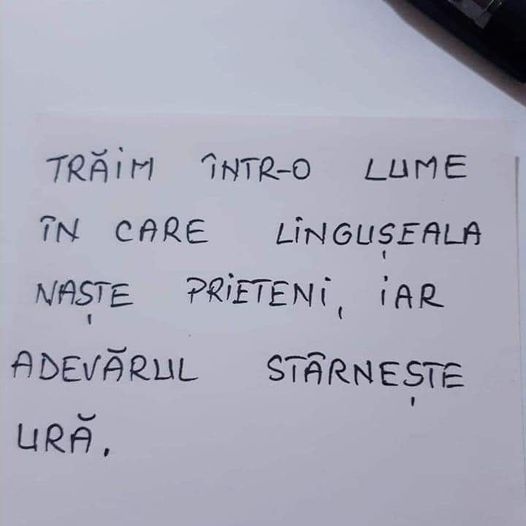 TRĂIM ÎNTR-O LUME
ÎN CARE LINGUȘEALA
NAȘTE PRIETENI, IAR
ADEVĂRUL STÂRNEȘTE
URĂ.